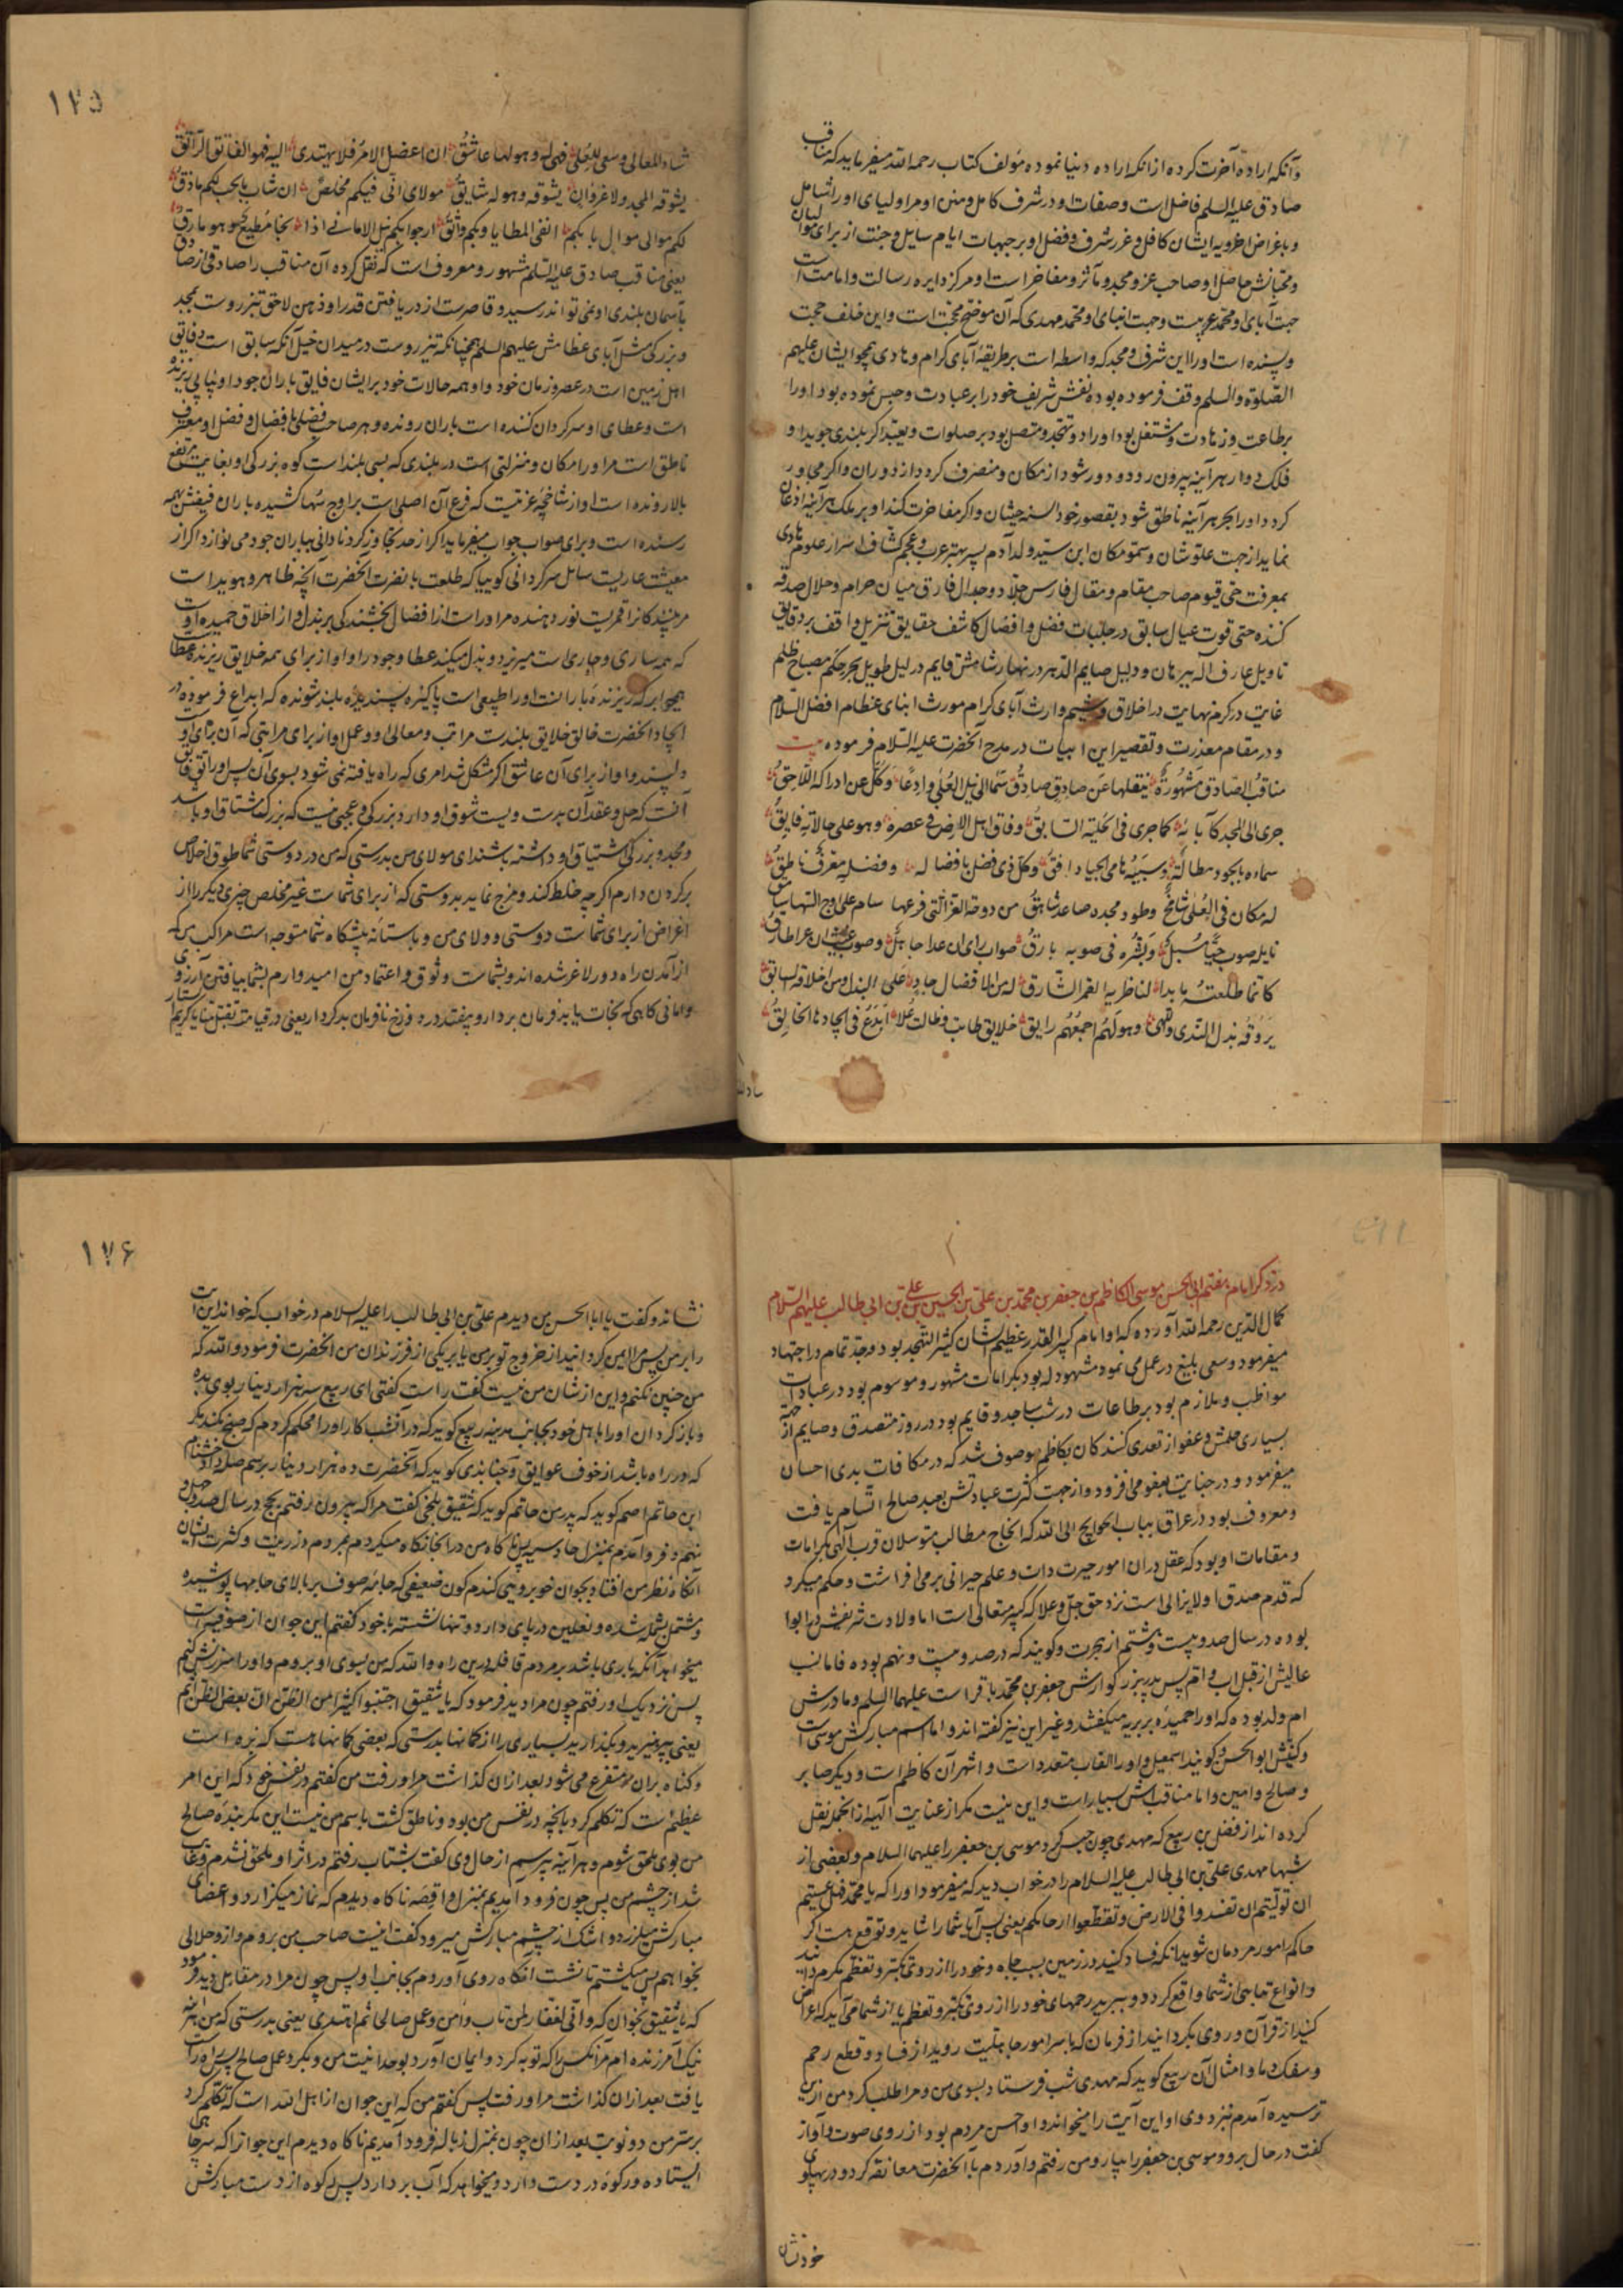 وآنکه اراده آخرت کرده از آنکه اراده دنیا نموده مؤلف کتاب رحمه الله میفرماید که مناقب
صادق علیه السلم فاضل است وصفات او در شرف کامل ومنن او مر اولیای او را شامل
وباغراض
ومحتانش حاصل او صاحب عز ومجد ومآثر ومفاخر است او مرکز دایره رسالت وامامت است
جهت آبای او محمد عربیست وجهت ابنای او محمد مهدی که آن موضح محجت است واین خلف حجت
وپسنده است او را این شرف ومجد که واسطه است بر طریقه آبای کرام وهادی همچو ایشان علیهم
الصلوة والسلم وقف فرموده بوده نفس شریف خود را بر عبادت وحبس نموده بود او را
بر طاعت وزهادت ومشتغل بود باوراد وتهجد ومتصل بود بر صلوات وتعبد اگر بلندی جوید او
فلک دوار هر آینه بیرون رود ودور شود از مکان ومنصرف گردد از دوران واگر مجاور
گردد او را بحر هر آینه ناطق شود بقصور خود السنه حیتان واگر مفاخرت کند او بر ملک هر آینه اذعان
نماید از جهت علو شان وسمو مکان ابن سید ولد آدم پسر بهتر عرب وعجم کشاف اسرار علوم هادی
بمعرفت حی قیوم صاحب مقام ومقال فارس جلاد وجدال فارق میان حرام وحلال صدقه
کننده حتی قوت عیال سابق در حلبات فضل وافضال کاشف حقایق تنزیل واقف بر دقایق
تاویل عارف اله ببرهان ودلیل صایم الدهر در نهار شامس قایم در لیل طویل بحر حکم مصباح ظلم
غایت در کرم نهایت در اخلاق وشیم وارث آبای کرام مورث ابنای عظام افضل السلام
ودر مقام معذرت وتقصیر این ابیات در مدح آنحضرت علیه السلام فرموده بیت
مناقب الصادق مشهورة ینقلها عن صادق صادق سما الی نیل العلی وادعا وکل عن ادراکه اللاحق
جری الی المجد کآبائه کما جری فی الحلبة السابق وفاق اهل الارض فی عصره وهو علی حالاته فایق
سماءه بالجود هطالة وسیبه هامی الحیا دافق وکل ذی فضل بافضاله وفضله معترف ناطق
له مکان فی العلی شامخ وطود مجده صاعد شاهق من دوحة العز التی فرعها سام علی اوج السها سامق
نایله صوب حیا مسبل وبشره فی صوبه بارق صواب رای ان عدا جاهل وصوب غیث ان عرا طارق
کانما طلعته ما بدا لناظریه القمر الشارق له من الافضال حاد علی البذل ومن اخلاقه سابق
یروقه بذل الندی واللهی وهو لهم اجمعهم رایق خلایق طابت وطالت علا ابدع فی ایجادها الخالق
شاد المعالی وسعی للعلی فهی له وهو لها عاشق ان اعضل الامر فلا یهتدی الیه فهو الفاتق الراتق
یشوقه المجد ولا غرو ان یشوقه وهو له شایق مولای انی فیکم مخلص ان شاب بالحب لکم ماذق
لکم موال موالی بابکم انضی المطایا وبکم واثق ارجو بکم نیل الامانی اذا نجا مطیع وهو مارق
یعنی مناقب صادق علیه السلم مشهور ومعروف است که نقل کرده آن مناقب را صادقی از صادق
بآسمان بلندی او نمی تواند رسید وقاصرست از دریافتن قدر او ذهن لاحق تیزروست بمجد
وبزرگی مثل آبای عظامش علیهم السلم همچنانکه تیزروست در میدان خیل آنکه سابق است وفایق
اهل زمین است در عصر وزمان خود واو همه حالات خود بر ایشان فایق باران جود او پیاپی ریزنده
است وعطای او سرگردان کننده است باران رونده وهر صاحب فضلی بافضال وفضل او معترف
ناطق است مر او را مکان ومنزلتی است در بلندی که بسی بلند است کوه بزرگی او بغایت مرتفع
بالا رونده است او از شاخچه عزتیست که فرع آن اصلی است بر اوج سها کشیده باران فیضش همه
رسنده است وبرای صواب جواب میفرماید اگر از حد تجاوز کرد نادانی بباران جود می نوازد اگر از
معیشت عاریت سایل سرگردانی گوییا که طلعت با نضرت آنحضرت آنچه ظاهر وهویداست
مر بینندگانرا قمریست نور دهنده مر او راست از افضال بخشندگی بر بذل واز اخلاق حمیده او
که همه ساری وجاری ست میریزد وبذل میکند عطا وجود را واو از برای همه خلایق ریزنده عطاست
همچو ابر که ریزنده باران است او را طبیعی است پاکیزه پسندیده بلند شونده که ابداع فرموده در
ایجاد آنحضرت خالق خلایق بلندست مراتب ومعالی وعمل او از برای مراتبی که آن برای او
ولپسند واو از برای آن عاشق اگر مشکل شد امری که راه یافته نمی شود بسوی آن پس او راتق فاتق
آنست که حل وعقد آن بدست ویست شوق او دارد بزرگی وعجبی نیست که بزرگ مشتاق او باشد
ومجد وبزرگی اشتیاق او داشته باشند ای مولای من بدرستی که من در دوستی شما طوق اخلاص
برگردن دارم اگرچه خلط کند ومزج نماید بدوستی که از برای شماست غیر مخلص چیزی دیگر را از
اغراض از برای شماست دوستی وولای من وبآستانه پیشگاه شما متوجه است مراکب من که
از آمدن راه دور لاغر شده اند وبشماست وثوق واعتماد من امیدوارم بشما بیافتن آرزوی
وامانی گاهی که نجات یابد فرمان بردار وبیفتد در دوزخ نافرمان بدکردار یعنی در قیامت تقبل منا یا کریم
در ذکر امام هفتم ابی الحسن موسی الکاظم بن جعفر بن محمد بن علی بن الحسین بن علی بن ابی طالب علیهم السلام
کمال الدین رحمه الله آورده که او امام کبیر القدر عظیم الشان کثیر التهجد بود وجد تمام در اجتهاد
میفرمود وسعی بلیغ در عمل می نمود مشهود له بود بکرامات مشهور وموسوم بود در عبادات
مواظب وملازم بود بر طاعات در شب ساجد وقایم بود در روز متصدق وصایم از جهة
بسیاری حلمش وعفو از تعدی کنندگان بکاظم موصوف شد که در مکافات بدی احسان
میفرمود ودر جنایت بعفو می افزود واز جهت کثرت عباداتش بعبد صالح اتسام یافت
ومعروف بود در عراق بباب الحوایج الی الله که انجاح مطالب متوسلان قرب آلهی بکرامات
ومقامات او بود که عقل در آن امور حیرت داشت وعلم حیرانی بر می افراشت وحکم میکرد
که قدم صدق او لا یزالی است نزد حق جل وعلا که کبیر متعالی است اما ولادت شریفش در ابوا
بوده در سال صد وبیست وهشتم از هجرت وگویند که در صد وبیست ونهم بوده فاما نسب
عالیش از قبل اب وام پس پدر بزرگوارش جعفر بن محمد باقر است علیهما السلم ومادرش
ام ولد بوده که او را حمیده بربریه میگفتند وغیر این نیز گفته اند واما اسم مبارکش موسی است
وکنیتش ابو الحسن وگویند اسمعیل واو را القاب متعدد است واشهر آن کاظم است ودیگر صابر
وصالح وامین واما مناقبش بسیار است واین نیست مگر از عنایت الهیه از آنجمله نقل
کرده اند از فضل بن ربیع که مهدی چون حبس کرد موسی بن جعفر را علیهما السلام وبعضی از
شبها مهدی علی بن ابی طالب علیه السلام را در خواب دید که میفرمود او را که یا محمد فهل عسیتم
ان تولیتم ان تفسدوا فی الارض وتقطعوا ارحامکم یعنی پس آیا شما را شاید وتوقع هست اگر
حاکم امور مردمان شوید آنکه فساد کنید در زمین بسبب جاه وخود را از روی تکبر وتعظم مکرم دانید
وانواع تباهی از شما واقع گردد وببرید رحمهای خود را از روی تکبر وتعظم یا از شما می آید که اعراض
کنید از قرآن وروی بگردانید از فرمان که باسرامور جاهلیت روید از فساد وقطع رحم
وسفک دما وامثال آن ربیع گوید که مهدی شب فرستاد بسوی من ومرا طلب کرد من ازین
ترسیده آمدم نزد وی او این آیت را میخواند واو احسن مردم بود از روی صوت وآواز
گفت در حال برو وموسی بن جعفر را بیار ومن رفتم وآوردم با آنحضرت معانقه کرد ودر پهلوی
خود نشان
نشاند وگفت یا ابا الحسن من دیدم علی بن ابی طالب را علیه السلام در خواب که خواند این آیت
را بر من پس مرا امین گردانید از خروج تو بر من یا بر یکی از فرزندان من آنحضرت فرمود والله که
من چنین نکنم واین از شان من نیست گفت راست گفتی ای ربیع سه هزار دینار بوی بده
وبازگردان او را باهل خود بجانب مدینه ربیع گوید که در آن شب کار او را محکم کردم که صبح نشد مگر
که در راه باشد از خوف عوایق وجنابذی گوید که آنحضرت ده هزار دینار برسم صله داد وخشنام
ابن حاتم اصم گوید که پدر من حاتم گوید که شقیق بلخی گفت مرا که بیرون رفتم بحج در سال صد وچهل و
نهم وفرود آمدم بمنزل قادسیه پس ناگاه من در آنجا نگاه میکردم بمردم در زینت وکثرت ایشان
آنگاه نظر من افتاد بجوان خوبرویی گندم گون ضعیفی که جامه صوف بر بالای جامها پوشیده
ومشتمل بشمله شده ونعلین در پای دارد وتنها نشسته با خود گفتم این جوان از صوفیه است
میخواهد آنکه باری باشد بر مردم قافله درین راه والله که من بسوی او بروم واو را سرزنش کنم
پس نزدیک او رفتم چون مرا دید فرمود که یا شقیق اجتنبوا کثیرا من الظن ان بعض الظن اثم
یعنی بپرهیزید وبگذارید بسیاری را از گمانها بدرستی که بعضی گمانها هست که بزه است
وگناه بر آن متفرع می شود بعد از آن گذاشت مرا ورفت من گفتم در نفس خود که این امر
عظیم است که تکلم کرد بآنچه در نفس من بود وناطق گشت باسم من نیست این مگر بنده صالح
من بوی ملحق شوم وهر آینه بپرسم از حال وی گفت بشتاب رفتم در اثر او وملحق نشدم وغایب
شد از چشم من پس چون فرود آمدیم بمنزل واقصه ناگاه دیدم که نماز میگزارد واعضای
مبارکش میلرزد واشک از چشم مبارکش میرود گفت اینست صاحب من بروم وازو حلالی
بخواهم پس میگشتم تا نشست آنگاه روی آوردم بجانب او پس چون مرا در مقابل دید فرمود
که یا شقیق بخوان که وانی لغفار لمن تاب وامن وعمل صالحا ثم اهتدی یعنی بدرستی که من هر آینه
نیک آمرزنده ام مر آنکس را که توبه کرد وایمان آورد بوحدانیت من وبکرد عمل صالح پس راه راست
یافت بعد از آن گذاشت مرا ورفت پس گفتم من که این جوان از اهل الله است که تکلم کرد
بر سر من دو نوبت بعد از آن چون بمنزل زباله فرود آمدیم ناگاه دیدم این جوانرا که بر سر چاهی
ایستاده ورکوه در دست دارد ومیخواهد که آب بردارد پس رکوه از دست مبارکش
۱۷۵
۱۷۶